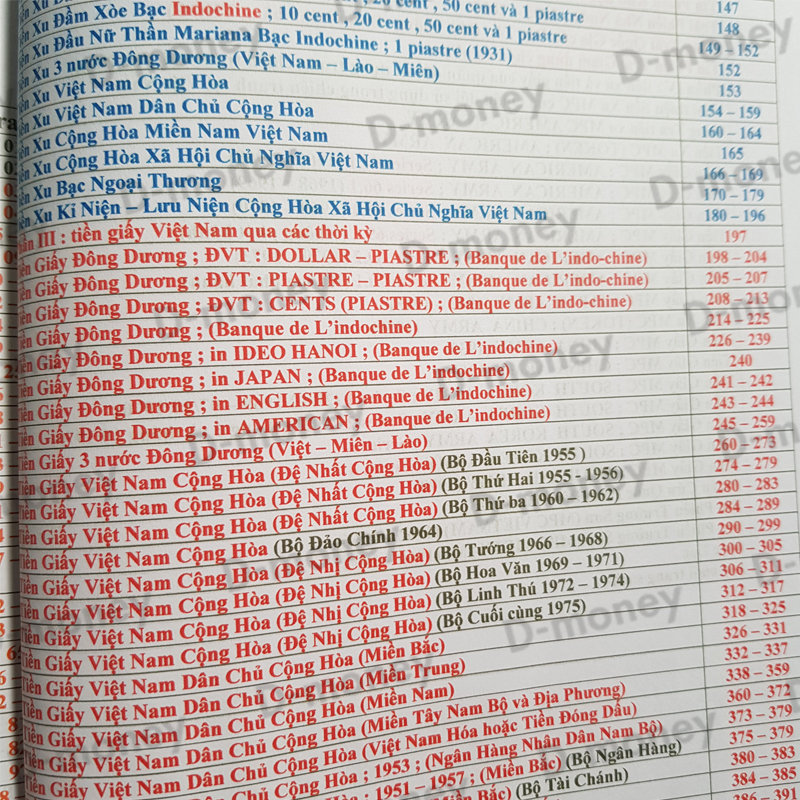 147
, 20 cent , 50 cent và 1 piastre 148
Xu Đầm Xòe Bạc Indochine ; 10 cent , 20 cent , 50 cent và 1 piastre 149 – 152
Xu Đầu Nữ Thần Mariana Bạc Indochine ; 1 piastre (1931) 152
Xu 3 nước Đông Dương (Việt Nam – Lào – Miên) 153
Xu Việt Nam Cộng Hòa 154 – 159
Xu Việt Nam Dân Chủ Cộng Hòa 160 – 164
Xu Cộng Hòa Miền Nam Việt Nam 165
Xu Cộng Hòa Xã Hội Chủ Nghĩa Việt Nam 166 – 169
Xu Bạc Ngoại Thương 170 – 179
Xu Kỉ Niện – Lưu Niện Cộng Hòa Xã Hội Chủ Nghĩa Việt Nam 180 – 196
III : tiền giấy Việt Nam qua các thời kỳ 197
Tiền Giấy Đông Dương ; ĐVT : DOLLAR – PIASTRE ; (Banque de L’indo-chine) 198 – 204
Tiền Giấy Đông Dương ; ĐVT : PIASTRE – PIASTRE ; (Banque de L’indo-chine) 205 – 207
Tiền Giấy Đông Dương ; ĐVT : CENTS (PIASTRE) ; (Banque de L’indo-chine) 208 – 213
Tiền Giấy Đông Dương ; (Banque de L’indochine) 214 – 225
Tiền Giấy Đông Dương ; in IDEO HANOI ; (Banque de L’indochine) 226 – 239
Tiền Giấy Đông Dương ; in JAPAN ; (Banque de L’indochine) 240
Tiền Giấy Đông Dương ; in ENGLISH ; (Banque de L’indochine) 241 – 242
Tiền Giấy Đông Dương ; in AMERICAN ; (Banque de L’indochine) 243 – 244
Tiền Giấy 3 nước Đông Dương (Việt – Miên – Lào) 245 – 259
Tiền Giấy Việt Nam Cộng Hòa (Đệ Nhất Cộng Hòa) (Bộ Đầu Tiên 1955 ) 260 – 273
Tiền Giấy Việt Nam Cộng Hòa (Đệ Nhất Cộng Hòa) (Bộ Thứ Hai 1955 - 1956) 274 – 279
Tiền Giấy Việt Nam Cộng Hòa (Đệ Nhất Cộng Hòa) (Bộ Thứ ba 1960 – 1962) 280 – 283
Tiền Giấy Việt Nam Cộng Hòa (Bộ Đảo Chính 1964) 284 – 289
Tiền Giấy Việt Nam Cộng Hòa (Đệ Nhị Cộng Hòa) (Bộ Tướng 1966 – 1968) 290 – 299
Tiền Giấy Việt Nam Cộng Hòa (Đệ Nhị Cộng Hòa) (Bộ Hoa Văn 1969 – 1971) 300 – 305
Tiền Giấy Việt Nam Cộng Hòa (Đệ Nhị Cộng Hòa) (Bộ Linh Thú 1972 – 1974) 306 – 311
Tiền Giấy Việt Nam Cộng Hòa (Đệ Nhị Cộng Hòa) (Bộ Cuối cùng 1975) 312 – 317
Tiền Giấy Việt Nam Dân Chủ Cộng Hòa (Miền Bắc) 318 – 325
Tiền Giấy Việt Nam Dân Chủ Cộng Hòa (Miền Trung) 326 – 331
Tiền Giấy Việt Nam Dân Chủ Cộng Hòa (Miền Nam) 332 – 337
Tiền Giấy Việt Nam Dân Chủ Cộng Hòa (Miền Tây Nam Bộ và Địa Phương) 338 – 359
Tiền Giấy Việt Nam Dân Chủ Cộng Hòa (Việt Nam Hóa hoặc Tiền Đóng Dấu) 360 – 372
Việt Nam Dân Chủ Cộng Hòa ; 1953 ; (Ngân Hàng Nhân Dân Nam Bộ) 373 – 379
Cộng Hòa ; 1951 – 1957 ; (Miền Bắc) (Bộ Ngân Hàng) 375 – 379
(Miền Bắc) (Bộ Tài Chánh) 380 – 383
384 – 385
386 – 391
D-money